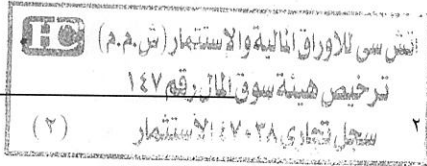 اتش سى للاوراق المالية والاستثمار (ش.م.م)
ترخيص هيئة سوق المال رقم ١٤٧
سجل تجارى ٤٧٠٣٨ الاستثمار
(٢)
٢